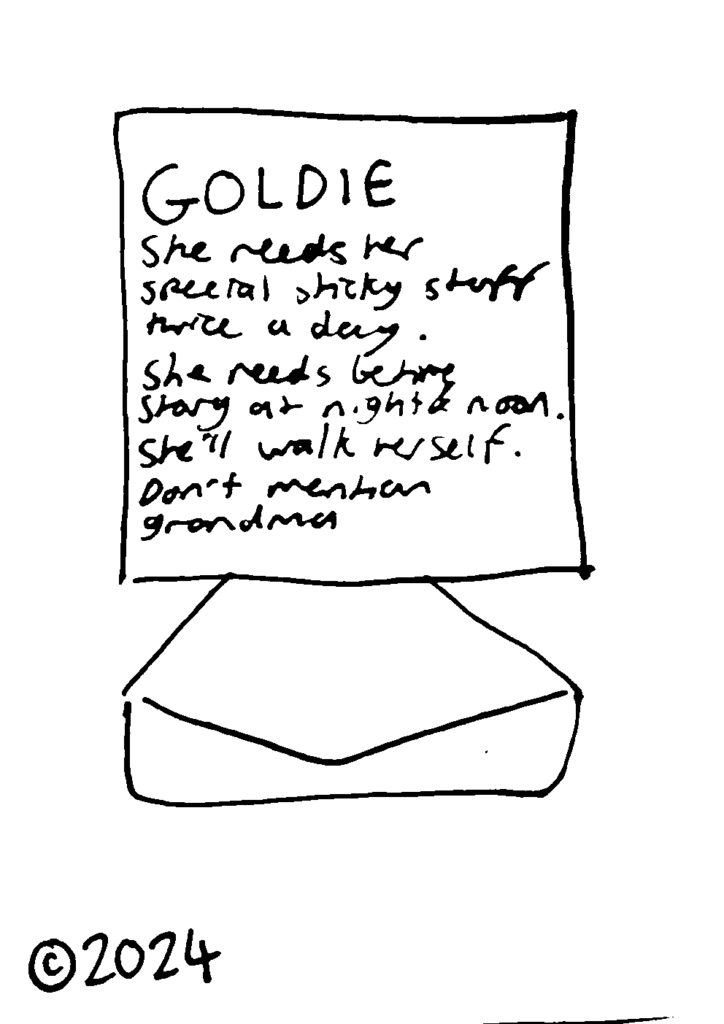 GOLDIE
She needs her
special sticky stuff
twice a day.
She needs betime
story at night & noon.
She'll walk herself.
Don't mention
grandma
©2024